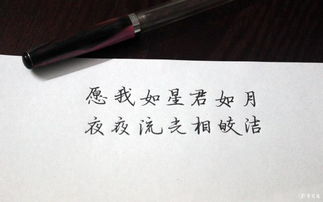 愿我如星君如月
夜夜流光相皎洁